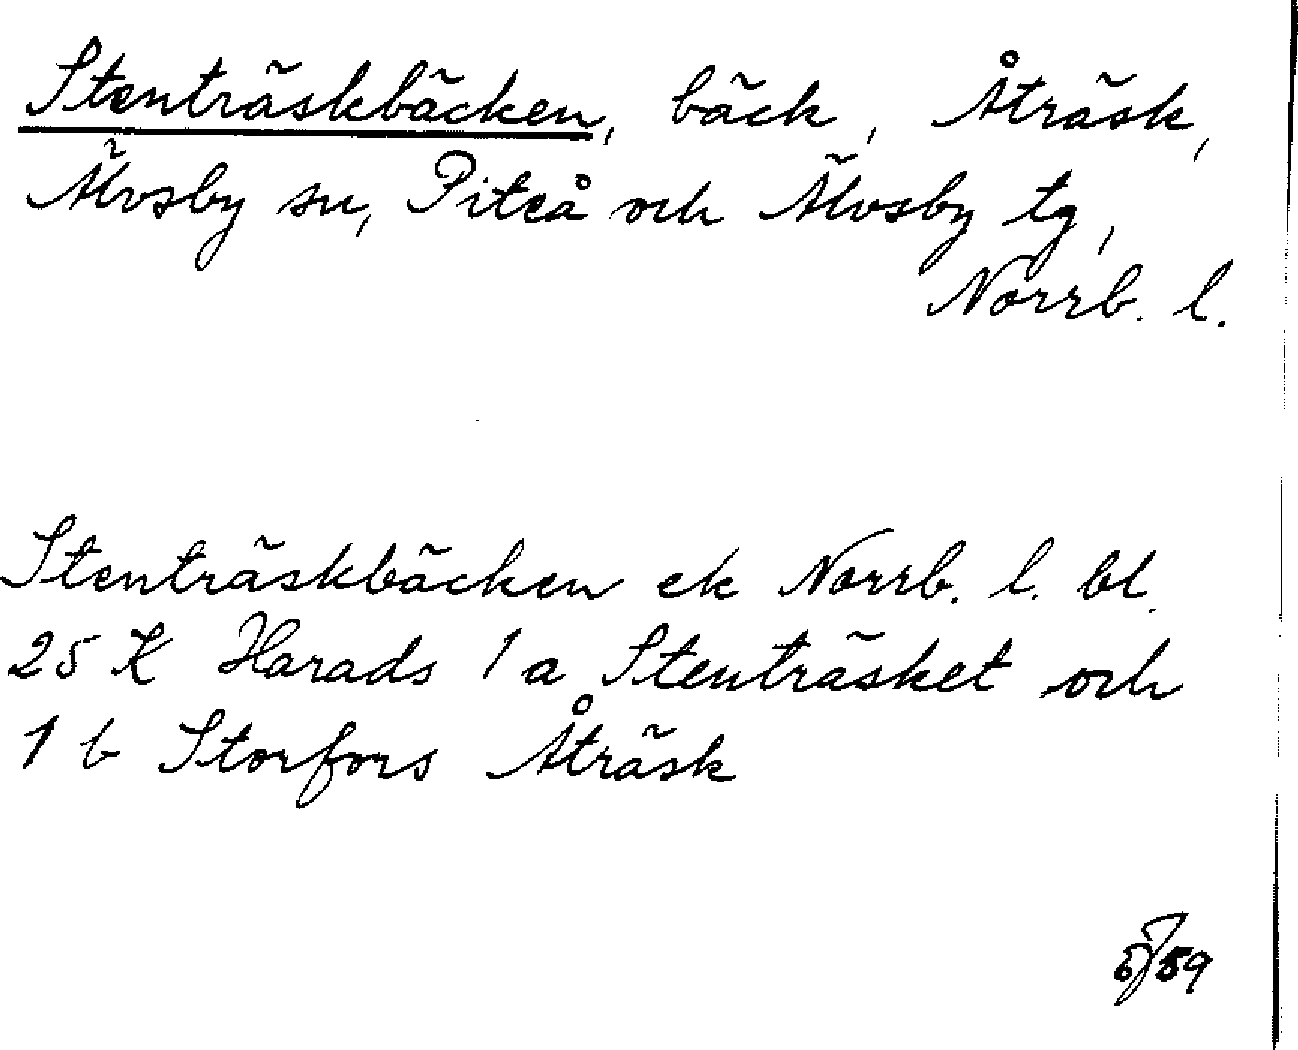 Stenträskbäcken, bäck, Åträsk,
Älvsby sn, Piteå och Älvsby tg,
Norrb. l.
Stenträskbäcken ek Norrb. l. bl.
25 K Harads 1 a Stenträsket och
1 b Storfors Åträsk